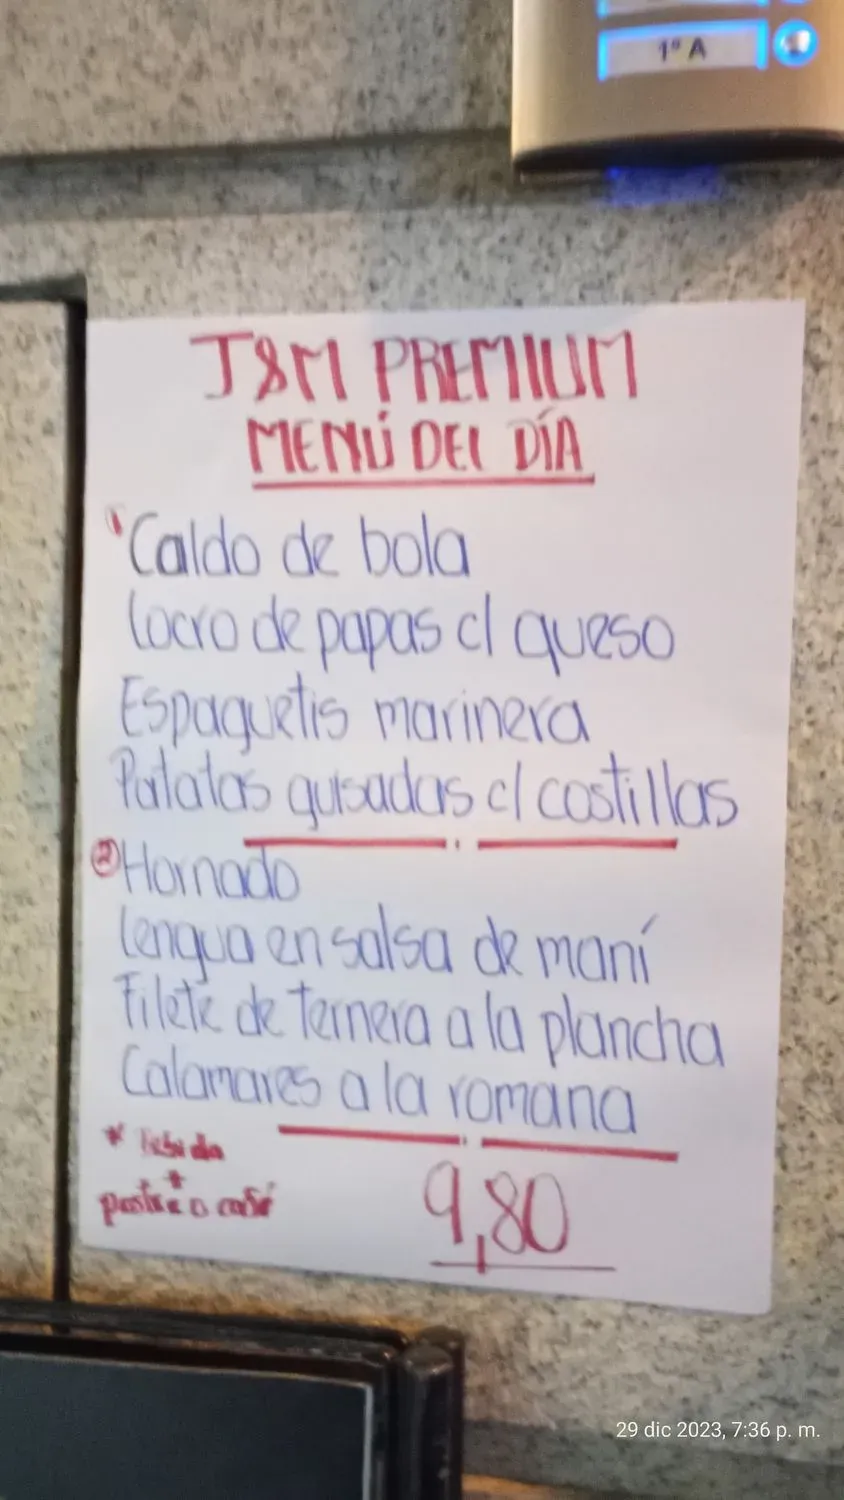 1º A
J&M PREMIUM
MENÚ DEL DÍA
1 Caldo de bola
Locro de papas c/ queso
Espaguetis marinera
Patatas guisadas c/ costillas
2 Hornado
Lengua en salsa de maní
Filete de ternera a la plancha
Calamares a la romana
* Bebida
+
postre o café
9,80
29 dic 2023, 7:36 p. m.